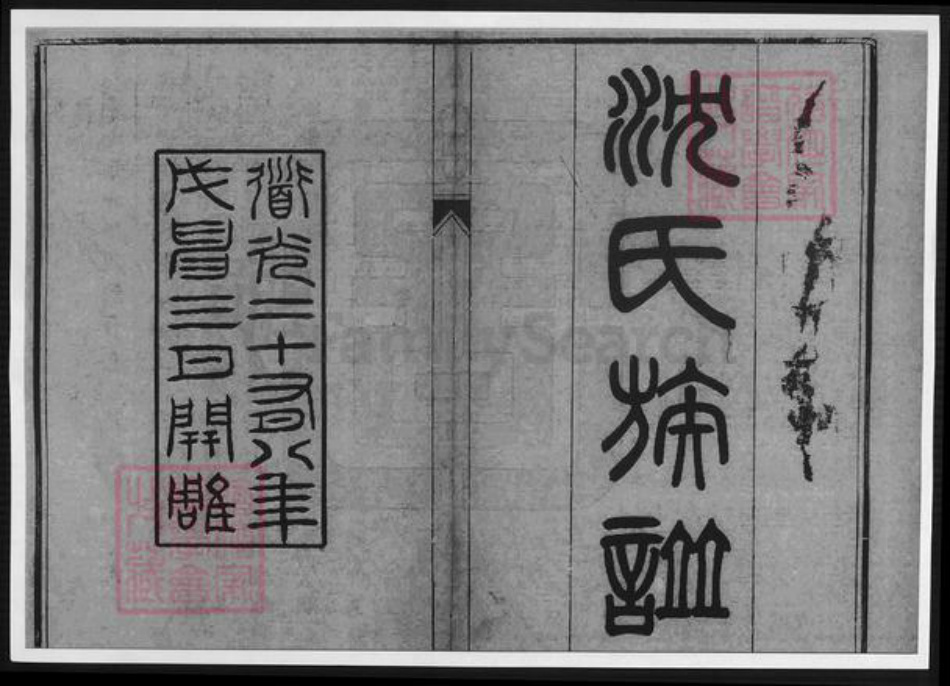 沈氏族譜
道光二十有八年
戊申三月開雕
FamilySearch